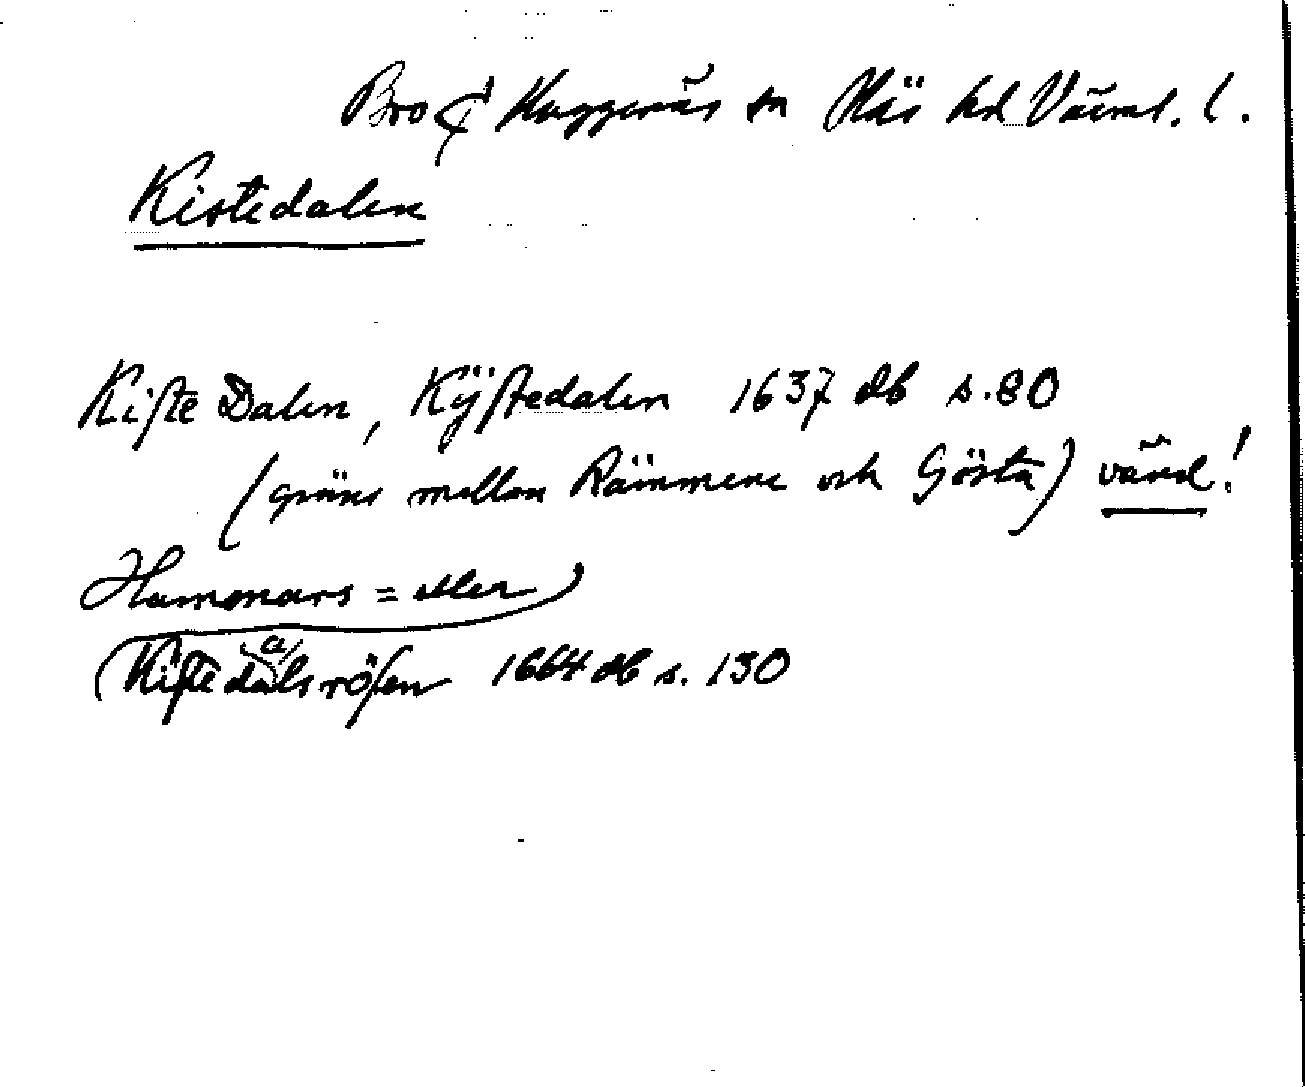 Bro & Huggenäs sn Näs hd Värml. l.
Kistedalen
Kiste Dalen, Kÿstedalen 1637 db s. 80
(gräns mellan Rämmene och Gösta) värd!
Hammars = eller
(Kiste dals rösen 1664 db s. 130